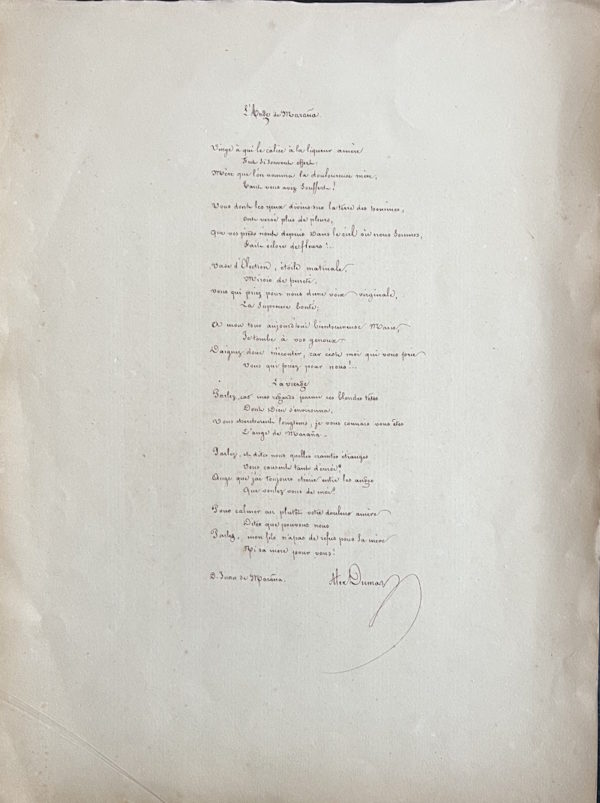 L'Ange de Maraña.
Vierge à qui le calice à la liqueur amère
Fut si souvent offert.
Mère que l'on nomma la douloureuse mère,
Tant vous avez souffert!
Vous dont les yeux divins sur la terre des hommes,
Ont versé plus de pleurs,
Que vos pieds n'ont depuis dans le ciel où nous sommes,
Fait éclore de fleurs!..
Vase d'Élection, étoile matinale,
Miroir de pureté,
Vous qui priez pour nous d'une voix virginale,
La suprême bonté.
A mon tour aujourd'hui bienheureuse Marie,
Je tombe à vos genoux
Daignez donc m'écouter, car c'est moi qui vous prie
Vous qui priez pour nous!..
La vierge
Parlez, car mes regards parmi ces blondes têtes
Dont Dieu s'environna.
Vous cherchèrent longtems, je vous connais vous êtes
L'ange de Maraña.
Parlez, et dites nous quelles craintes étranges
Vous causent tant d'émoi?
Ange que j'ai toujours chérie entre les anges
Que voulez vous de moi?
Pour calmer au plutôt votre douleur amère
Dites que pouvons nous
Parlez, mon fils n'a pas de refus pour sa mère
Ni sa mère pour vous!
D. Juan de Maraña.
Alex Dumas